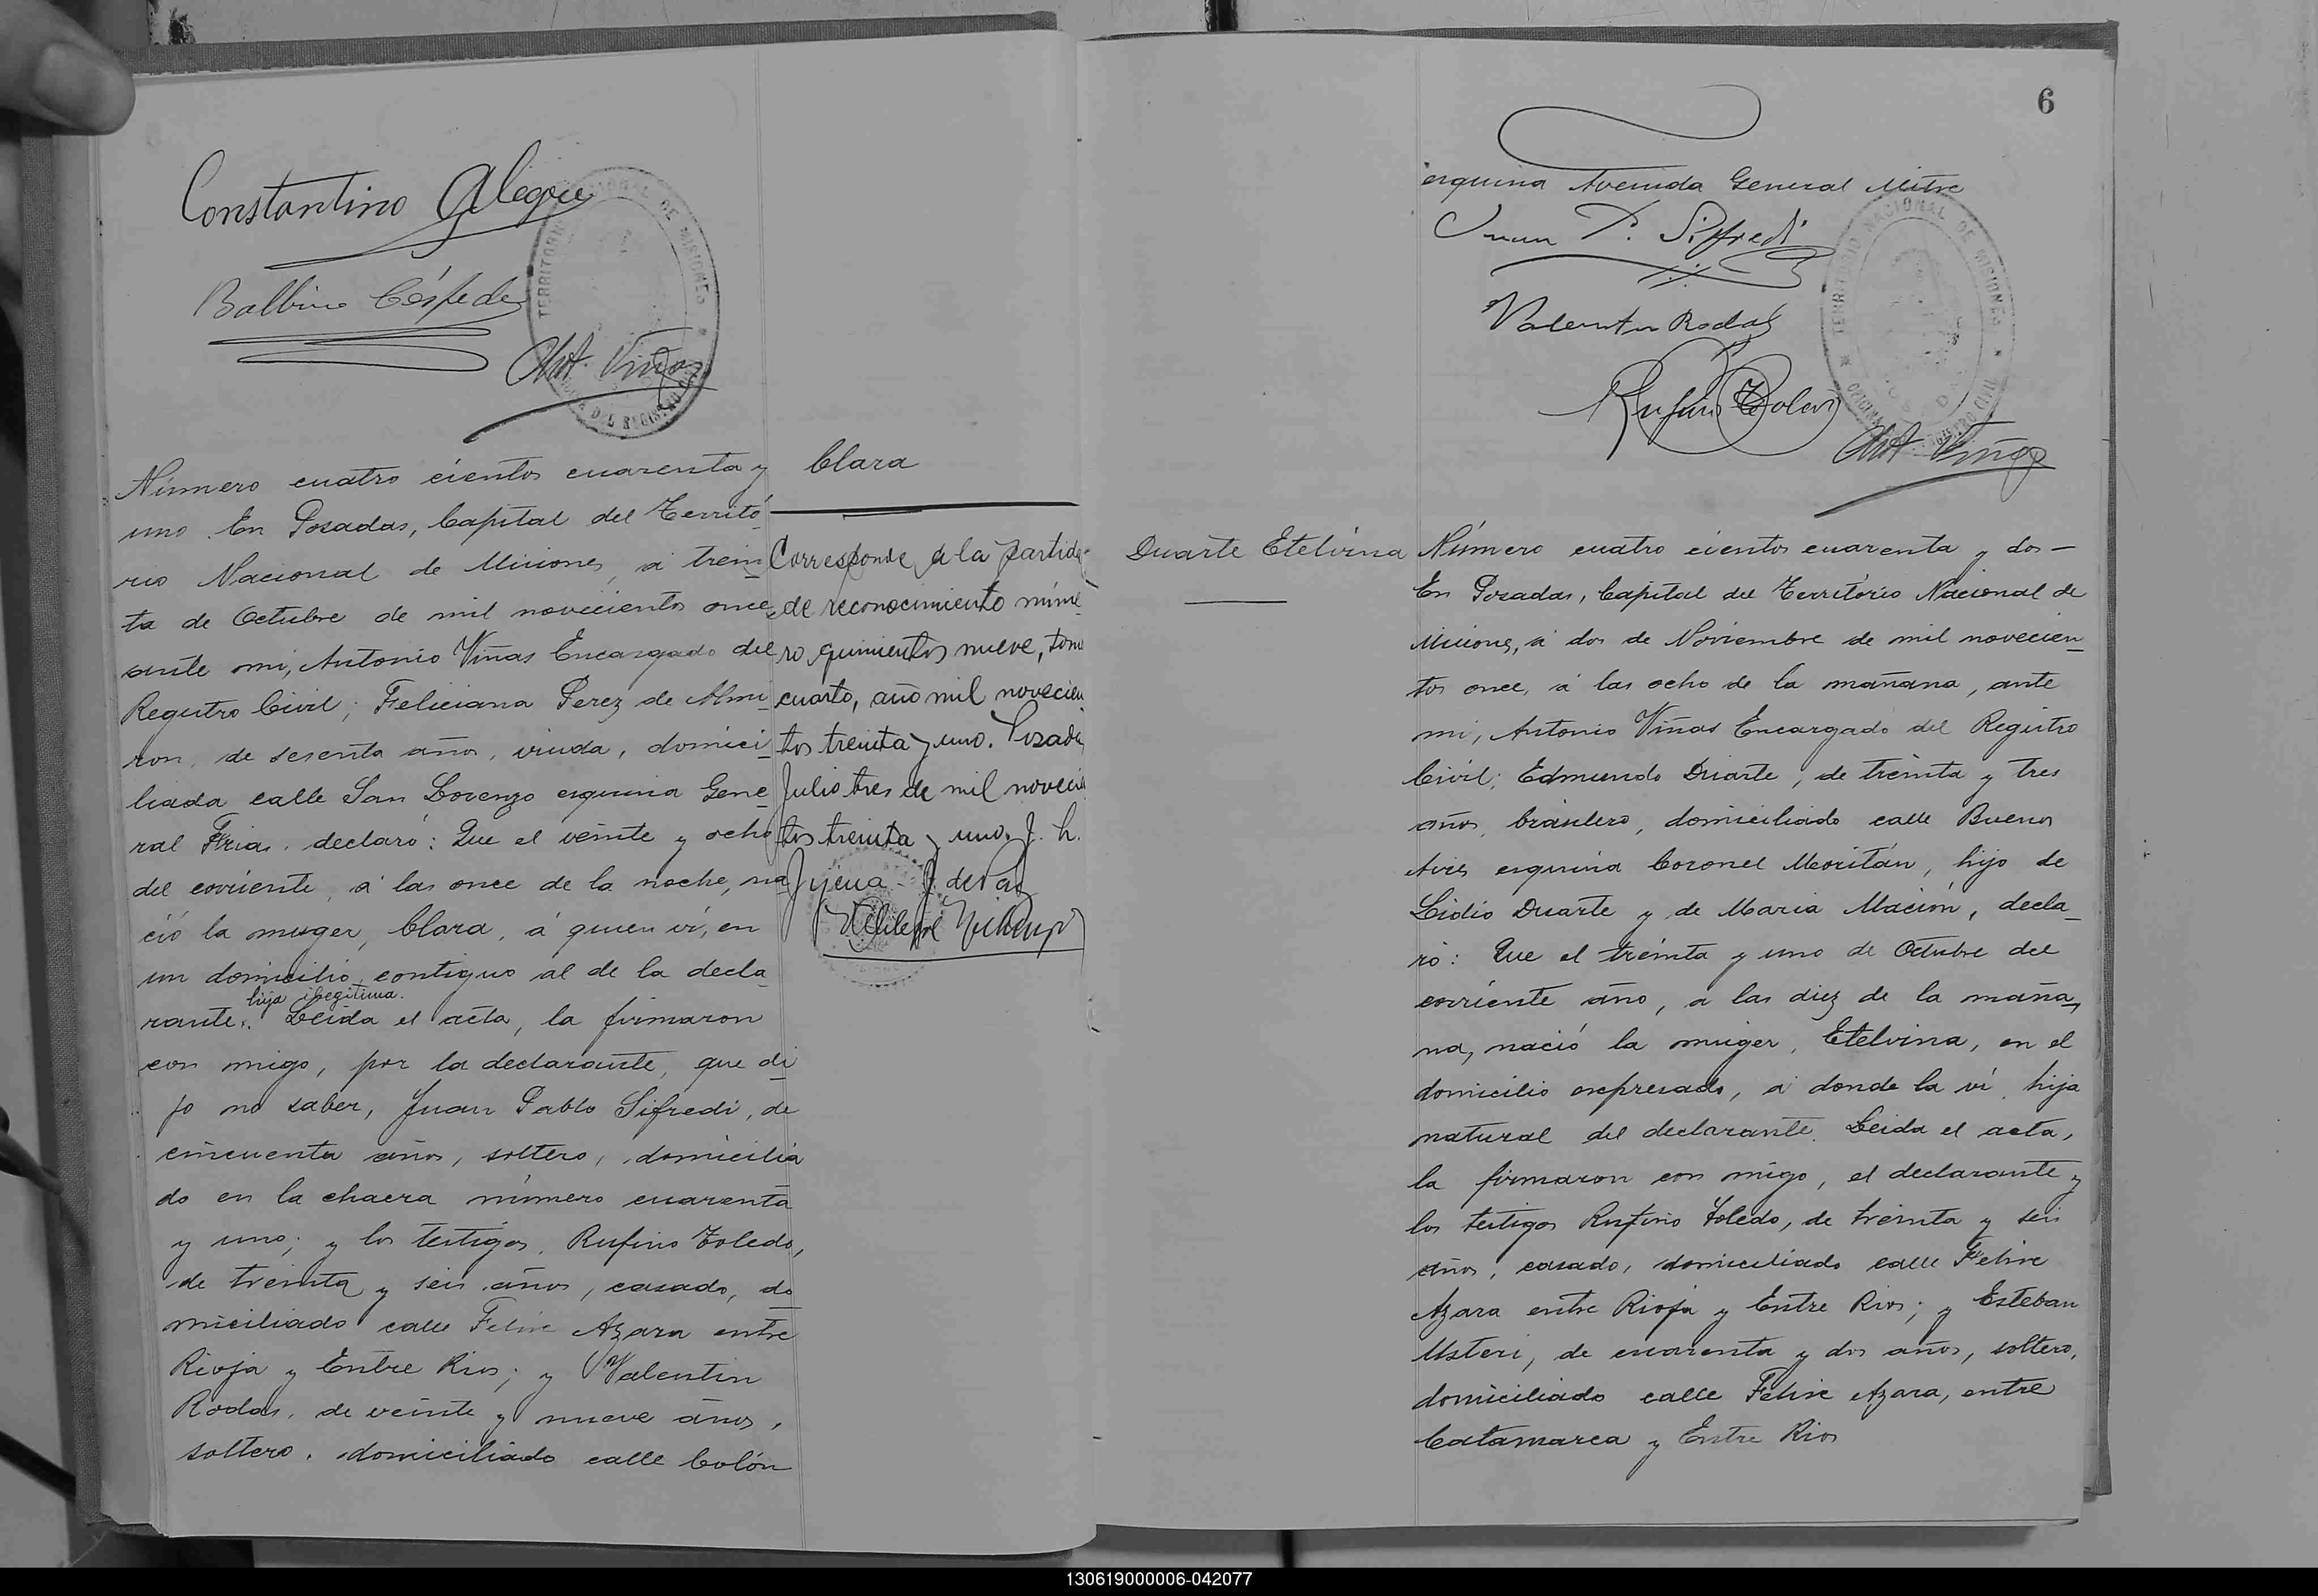 Constantino Alegre
Balbino Céspedes
Ant. Viñas
TERRITORIO NACIONAL DE MISIONES
OFICINA DEL REGISTRO CIVIL
Número cuatro cientos cuarenta y
uno. En Posadas, Capital del Territó-
rio Nacional de Misiones, á trein-
ta de Octubre de mil novecientos once,
ante mi, Antonio Viñas Encargado del
Registro Civil; Feliciana Perez de Almi-
ron, de sesenta años, viuda, domici-
liada calle San Lorenzo esquina Gene-
ral Frias, declaró: Que el veinte y ocho
del corriente, á las once de la noche, na-
ció la muger, Clara, á quien ví, en
un domicilio contiguo al de la decla-
hija ilegitima.
rante. Leida el acta, la firmaron
con migo, por la declarante, que di-
jo no saber, Juan Pablo Sifredi, de
cincuenta años, soltero, domicilia-
do en la chacra número cuarenta
y uno; y los testigos, Rufino Toledo,
de treinta y seis años, casado, do-
miciliado calle Felix Azara entre
Rioja y Entre Rios; y Valentin
Rodas, de veinte y nueve años,
soltero, domiciliado calle Colón
Clara
Corresponde a la partida
de reconocimiento núme-
ro quinientos nueve, tomo
cuarto, año mil novecien-
tos treinta y uno. Posadas
Julio tres de mil novecien
tos treinta y uno. J. h.
6
esquina Avenida General Mitre
Juan P. Siffredi
Valentin Rodas
Rufino Toledo
TERRITORIO NACIONAL DE MISIONES
OFICINA DEL REGISTRO CIVIL
Ant. Viñas
Duarte Etelvina
Número cuatro cientos cuarenta y dos —
En Posadas, Capital del Território Nacional de
Misiones, á dos de Noviembre de mil novecien-
tos once, á las ocho de la mañana, ante
mi, Antonio Viñas Encargado del Registro
Civil; Edmundo Duarte, de treinta y tres
años, brasilero, domiciliado calle Buenos
Aires esquina Coronel Moritán, hijo de
Lidio Duarte y de Maria Mación, decla-
ró: Que el treinta y uno de Octubre del
corriente año, a las diez de la maña-
na, nació la muger, Etelvina, en el
domicilio expresado, á donde la ví, hija
natural del declarante. Leida el acta,
la firmaron con migo, el declarante y
los testigos Rufino Toledo, de treinta y seis
años, casado, domiciliado calle Felix
Azara entre Rioja y Entre Rios; y Esteban
Usteri, de cuarenta y dos años, soltero,
domiciliado calle Felix Azara, entre
Catamarca y Entre Rios
130619000006-042077